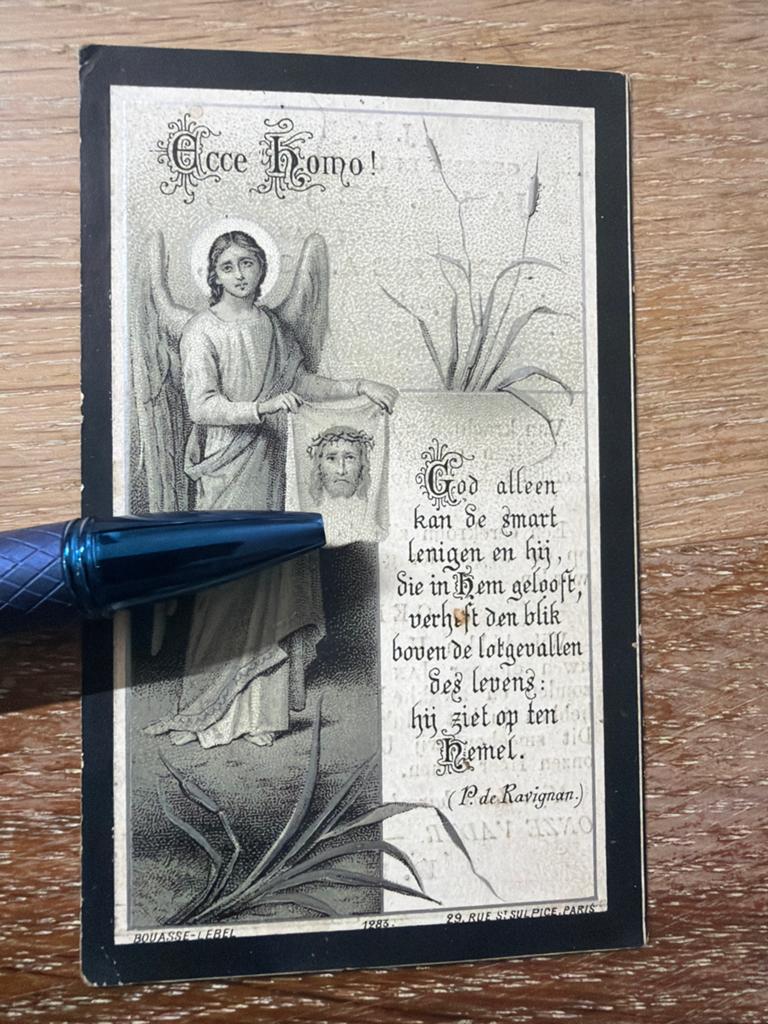 Ecce Homo!
God alleen
kan de smart
lenigen en hij,
die in Hem gelooft,
verheft den blik
boven de lotgevallen
des levens:
hij ziet op ten
Hemel.
(P. de Ravignan.)
BOUASSE-LEBEL
1283.
29, RUE ST SULPICE, PARIS